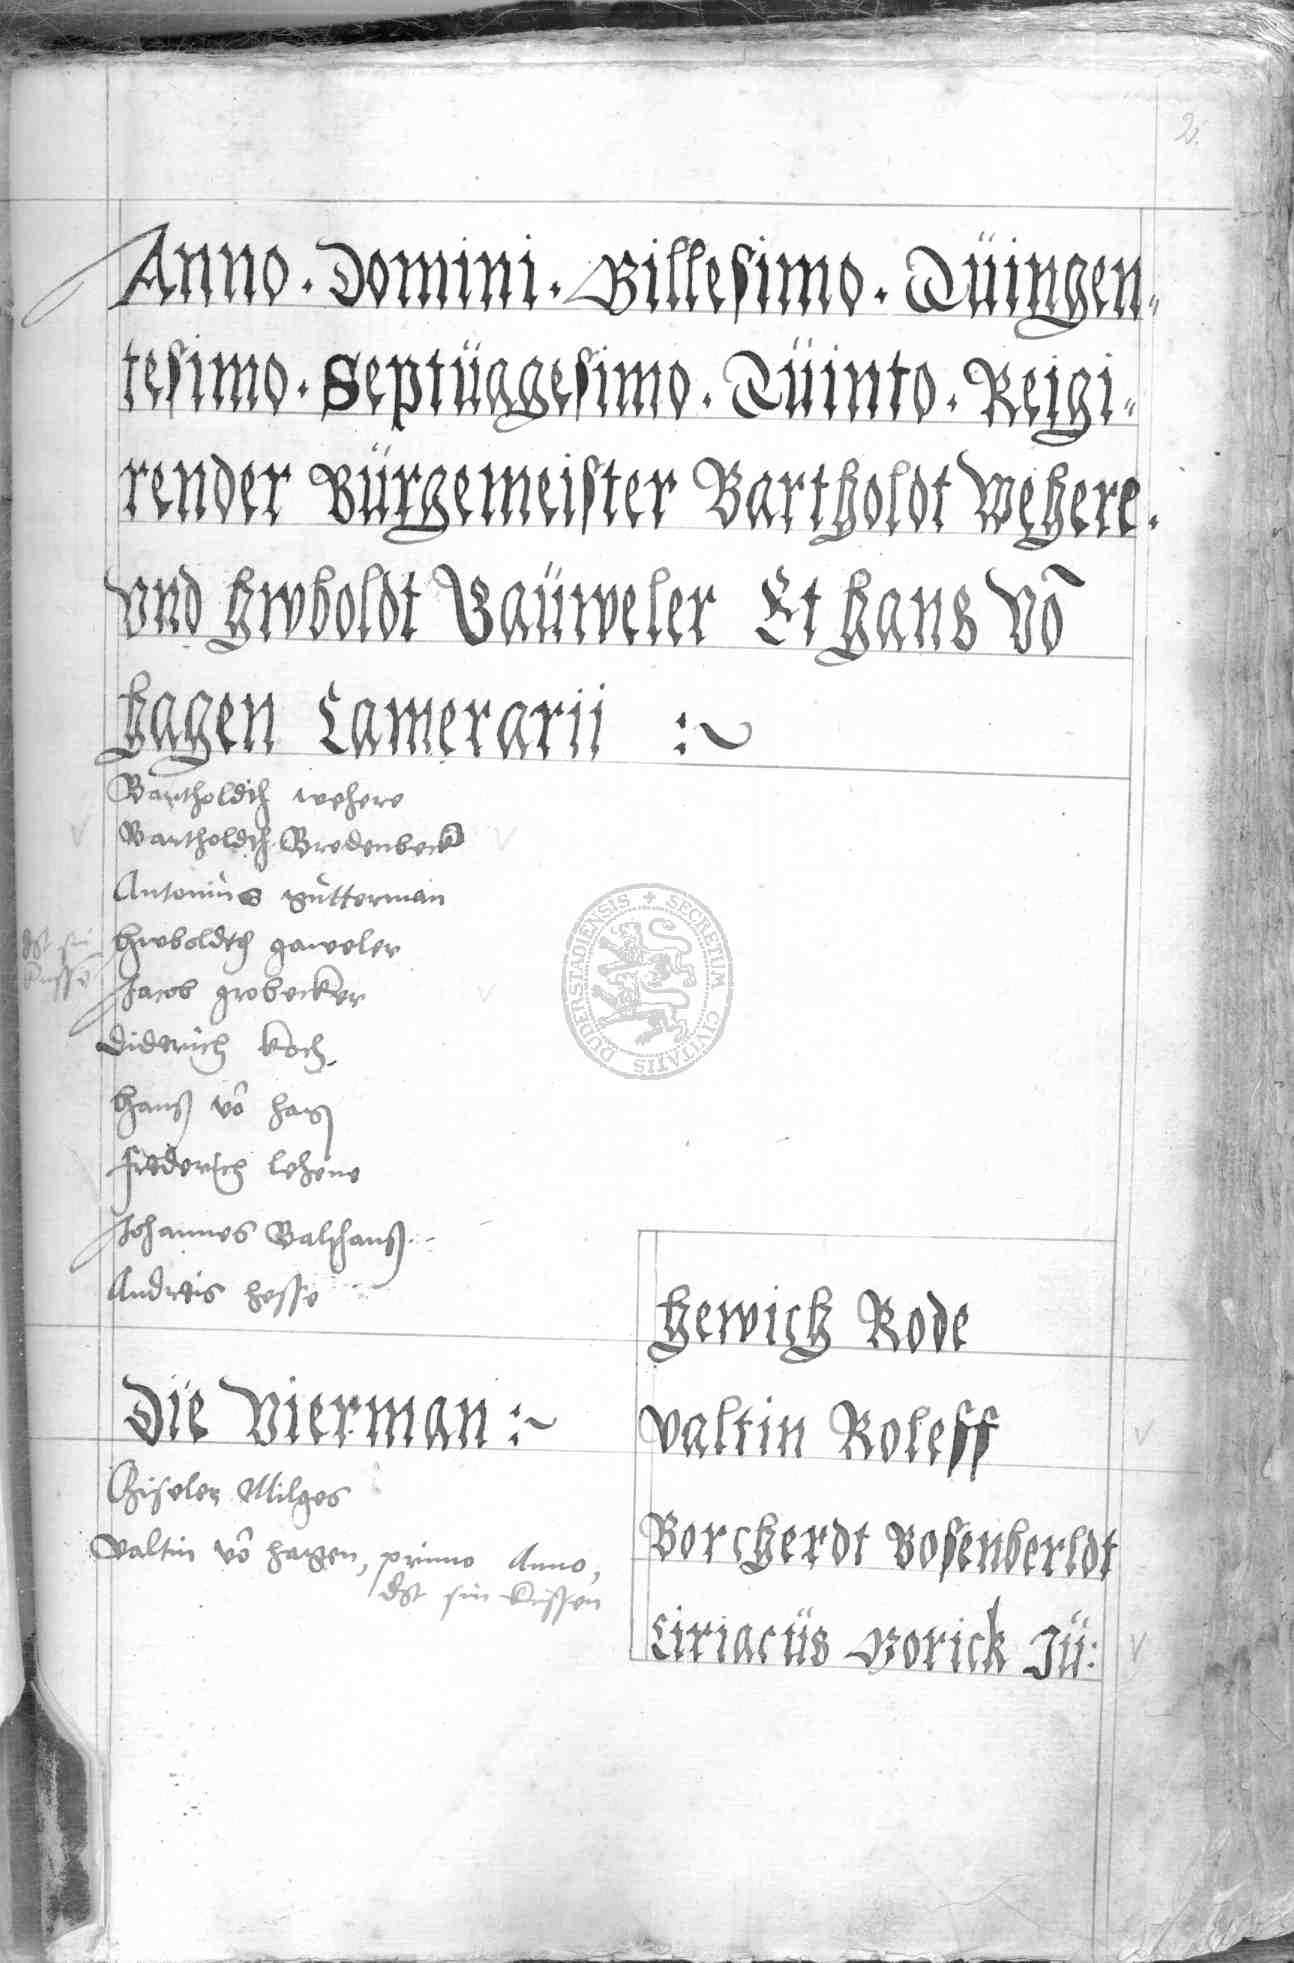 2.
Anno . Domini . Millesimo . Qüingen„
tesimo . Septüagesimo . Qüinto . Reigi„
render Bürgemeister Bartholdt Wehere .
Vnd Hwboldt Gaüweler Et Hans Võ
Hagen Camerarii :~
Bartholdth wehere
Bartholdth Bredenbeck
Antoniüs gütterman
Hwboldth gaweler
dst sin
küssē
Jacob grobecker
Diderich Koch
Hanß võ hagē
Frederich lehene
Johannes Balthanß
Andreis hesse
Die Vierman :~
Giseler Milges
Valtin võ hagen, primo Anno,
dst sin küssen
Hewich Rode
Valtin Roleff
Borcherdt Bosenberldt
Ciriacüs Borick Jü:
SECRETUM CIVITATIS DUDERSTADIENSIS